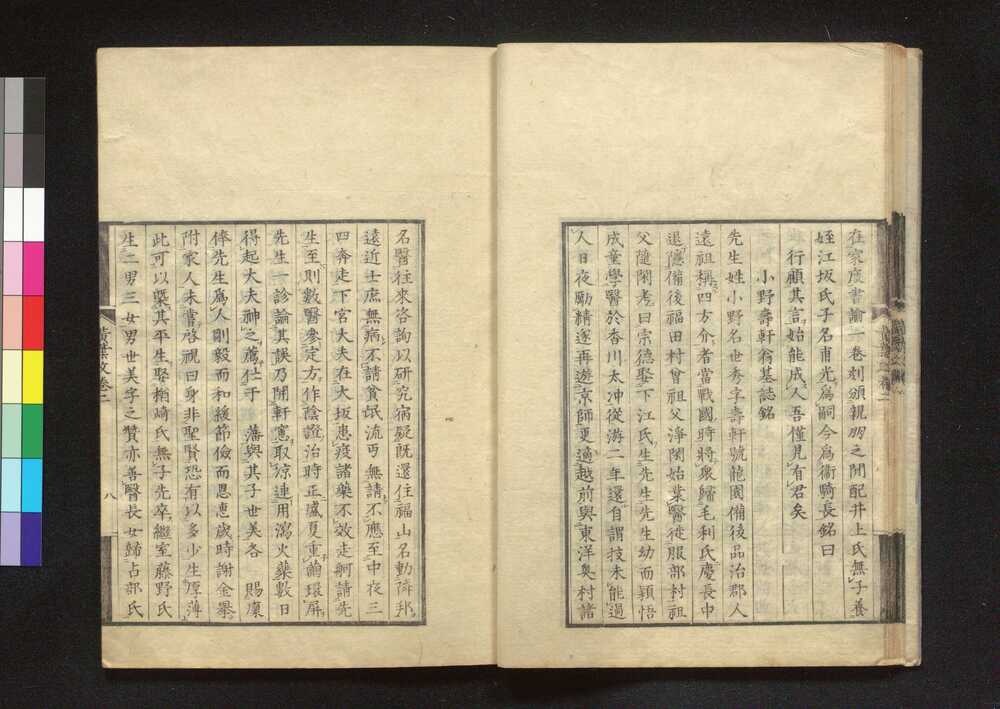 在家庭書諭一卷刹頒親朋之間配井上氏無子養
姪江坂氏子名甫光爲嗣今爲衝騎長銘曰
行顧其言始能成人吾僅見有君矣
小野壽軒翁墓誌銘
先生姓小野名世秀字壽軒號龍圓備後品治郡人
遠祖稱四方介者當戰國時將衆歸毛利氏慶長中
退隱備後福田村曾祖父淨閑始業醫徙服部村祖
父隨閑考曰崇德娶下江氏生先生先生幼而穎悟
成童學醫於香川太冲從游二年還自謂技未能過
人日夜勵精遂再遊京師更適越前與東洋奥村諸
名醫往來咨詢以研究宿疑既還住福山名動隣邦
遠近士庶無病不請貧氓流丐無請不應至中夜三
四奔走下宮大夫在大坂患疫諸藥不效走舸請先
生至則數醫參定方作陰證治時正盛夏重繭環屏
先生一診論其誤乃開軒窻取凉連用瀉火藥數日
得起大夫神之薦仕于 藩與其子世美各 賜廩
俸先生爲人剛毅而和緩節儉而恩惠歲時謝金擧
附家人未嘗啓視曰身非聖賢恐有以多少生厚薄
此可以槩其平生娶楢崎氏無子先卒繼室藤野氏
生二男三女男世美字之贊亦善醫長女歸占部氏
黄葉文卷二
八